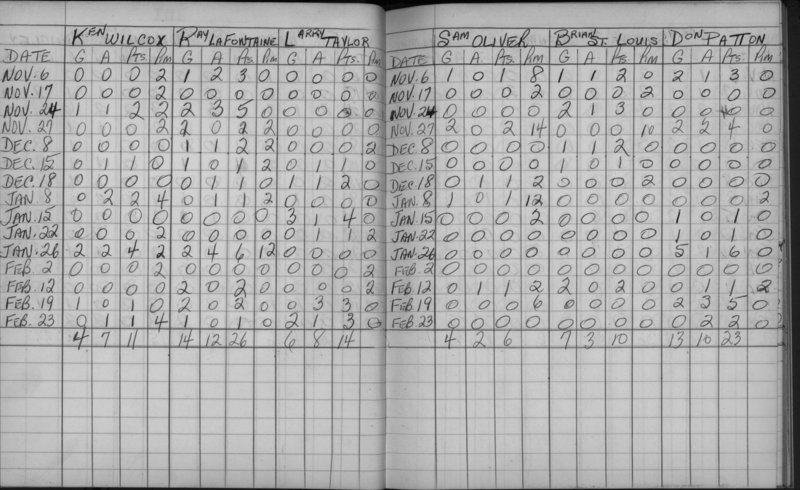 KEN WILCOX RAY LAFONTAINE LARRY TAYLOR
DATE G A Pts. Pim G A Pts. Pim G A Pts. Pim
NOV. 6 0 0 0 2 1 2 3 0 0 0 0 0
NOV. 17 0 0 0 2 0 0 0 0 0 0 0 0
NOV. 24 1 1 2 2 2 3 5 0 0 0 0 0
NOV. 27 0 0 0 2 2 0 2 2 0 0 0 0
DEC. 8 0 0 0 0 1 1 2 2 0 0 0 2
DEC. 15 0 1 1 0 1 0 1 2 0 1 1 0
DEC. 18 0 0 0 0 0 1 1 0 1 1 2 0
JAN. 8 0 2 2 4 0 1 1 2 0 0 0 0
JAN. 15 0 0 0 0 0 0 0 0 3 1 4 0
JAN. 22 0 0 0 2 0 0 0 0 0 1 1 2
JAN. 26 2 2 4 2 2 4 6 12 0 0 0 0
FEB. 2 0 0 0 2 0 0 0 0 0 0 0 2
FEB. 12 0 0 0 0 2 0 2 0 0 0 0 2
FEB. 19 1 0 1 0 2 0 2 0 0 3 3 0
FEB. 23 0 1 1 4 1 0 1 0 2 1 3 0
4 7 11 14 12 26 6 8 14
SAM OLIVER BRIAN ST. LOUIS DON PATTON
DATE G A Pts. Pim G A Pts. Pim G A Pts. Pim
NOV. 6 1 0 1 8 1 1 2 0 2 1 3 0
NOV. 17 0 0 0 2 0 0 0 2 0 0 0 0
NOV. 24 0 0 0 0 2 1 3 0 0 0 0 0
NOV. 27 2 0 2 14 0 0 0 10 2 2 4 0
DEC. 8 0 0 0 0 1 1 2 0 0 0 0 0
DEC. 15 0 0 0 0 1 0 1 0 0 0 0 0
DEC. 18 0 1 1 2 0 0 0 2 0 0 0 0
JAN. 8 1 0 1 12 0 0 0 0 0 0 0 2
JAN. 15 0 0 0 2 0 0 0 0 1 0 1 0
JAN. 22 0 0 0 0 0 0 0 0 1 0 1 0
JAN. 26 0 0 0 0 0 0 0 0 5 1 6 0
FEB. 2 0 0 0 0 0 0 0 0 0 0 0 0
FEB. 12 0 1 1 2 2 0 2 0 0 1 1 2
FEB. 19 0 0 0 6 0 0 0 0 2 3 5 0
FEB. 23 0 0 0 0 0 0 0 0 0 2 2 0
4 2 6 7 3 10 13 10 23